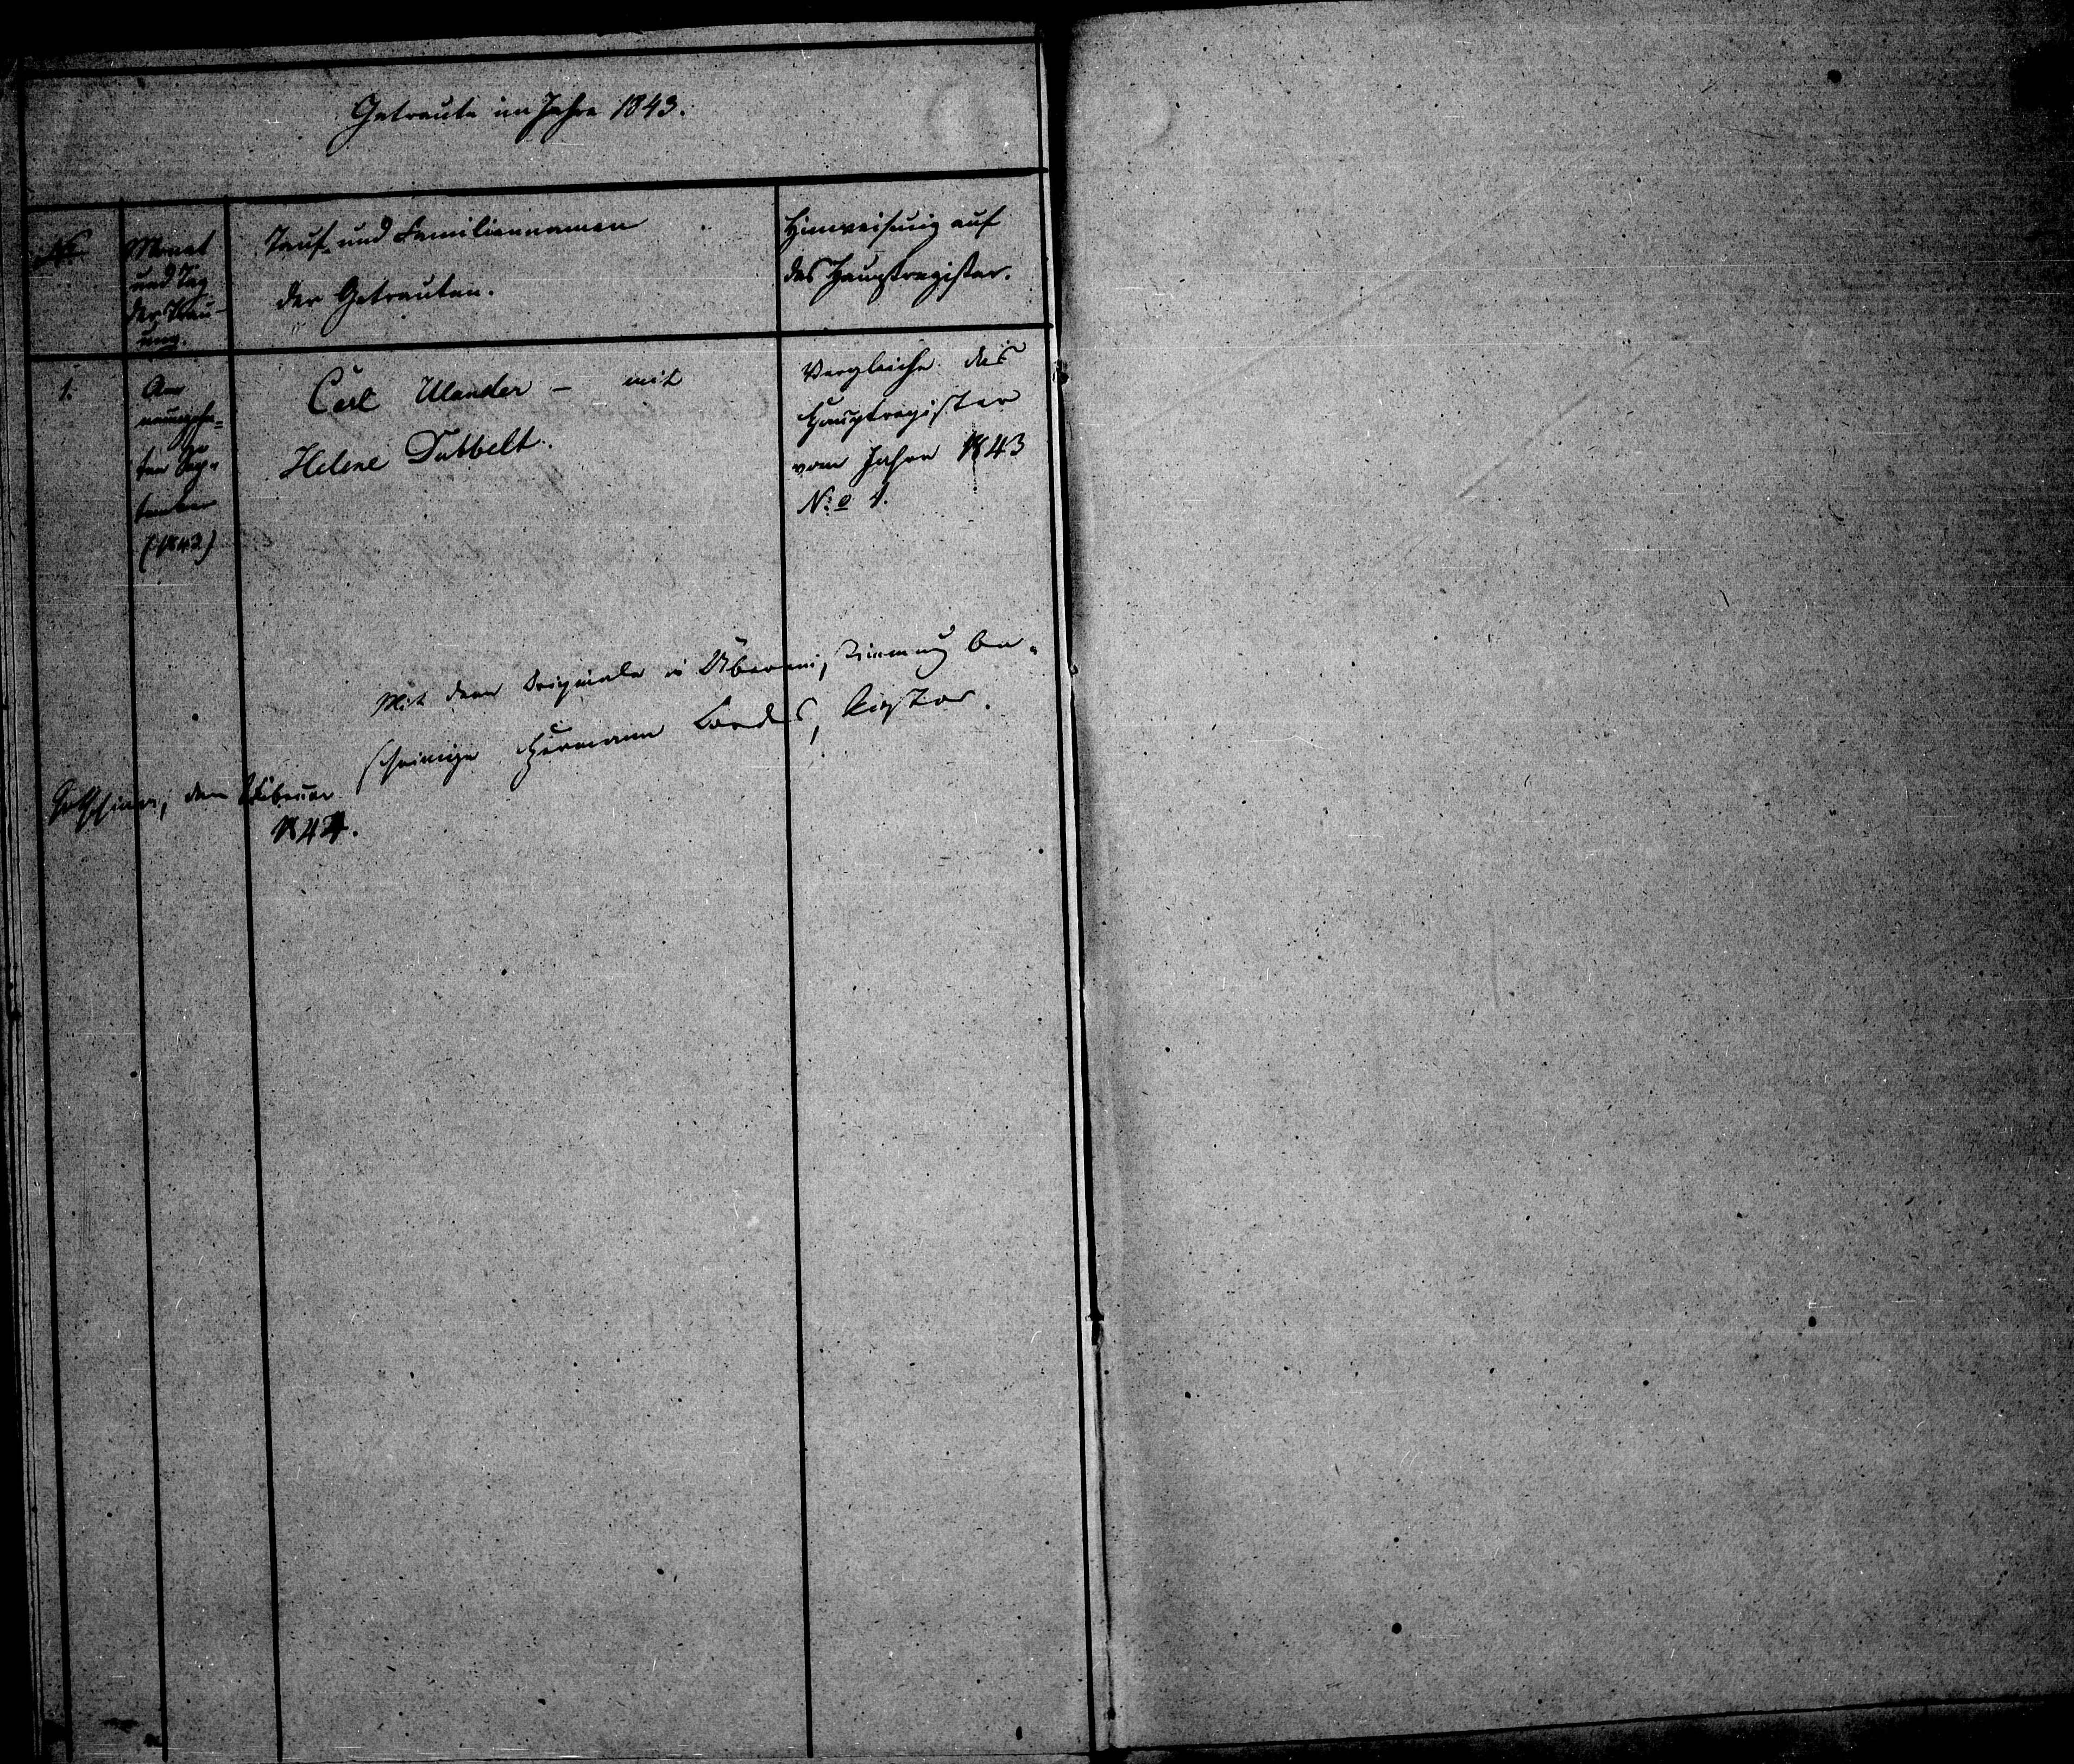 Getraute im Jahre 1843.
№
Monat
und Tag
der Trau-
ung.
Tauf- und Familiennamen
der Getrauten.
Hinweisung auf
das Hauptregister.
1.
Am
neunzehn=
ten Sep=
tember
(1843)
Carl Ulander – mit
Helene Dubbelt.
Vergleiche das
Hauptregister
vom Jahre 1843
N:o 1.
Mit dem Originale in Übereinstimmung be-
scheinige Hermann, Pastor.
den Februar
1844.